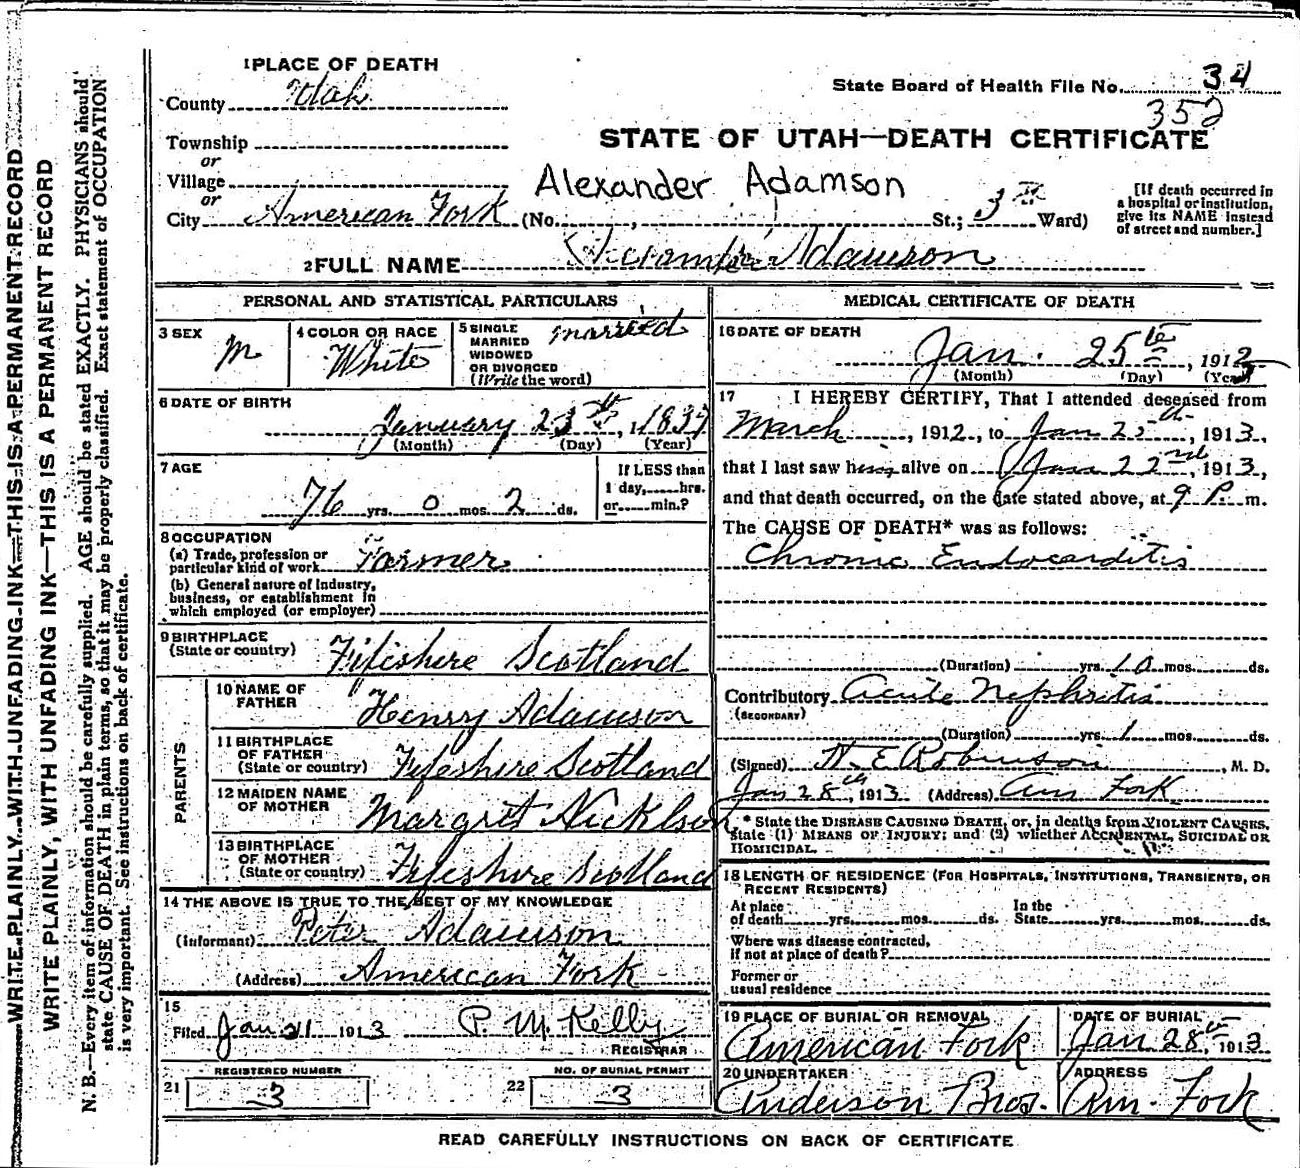 WRITE PLAINLY, WITH UNFADING INK—THIS IS A PERMANENT RECORD
WRITE PLAINLY, WITH UNFADING INK—THIS IS A PERMANENT RECORD
N. B.—Every item of information should be carefully supplied. AGE should be stated EXACTLY. PHYSICIANS should
state CAUSE OF DEATH in plain terms, so that it may be properly classified. Exact statement of OCCUPATION
is very important. See instructions on back of certificate.
1 PLACE OF DEATH
County Utah
State Board of Health File No. 34
352
Township
or
Village
or
City American Fork (No. , St.; 3rd Ward)
STATE OF UTAH—DEATH CERTIFICATE
Alexander Adamson
[If death occurred in
a hospital or institution,
give its NAME instead
of street and number.]
2 FULL NAME Adamson
PERSONAL AND STATISTICAL PARTICULARS
3 SEX
M
4 COLOR OR RACE
White
5 SINGLE
MARRIED
WIDOWED
OR DIVORCED
(Write the word)
married
6 DATE OF BIRTH
January 23th, 1837
(Month) (Day) (Year)
7 AGE
76 yrs. 0 mos. 2 ds.
If LESS than
1 day, hrs.
or min.?
8 OCCUPATION
(a) Trade, profession or
particular kind of work Farmer
(b) General nature of Industry,
business, or establishment in
which employed (or employer)
9 BIRTHPLACE
(State or country) Fifeshire Scotland
PARENTS
10 NAME OF
FATHER Henry Adamson
11 BIRTHPLACE
OF FATHER
(State or country) Fifeshire Scotland
12 MAIDEN NAME
OF MOTHER Margret Nicklson
13 BIRTHPLACE
OF MOTHER
(State or country) Fifeshire Scotland
14 THE ABOVE IS TRUE TO THE BEST OF MY KNOWLEDGE
(Informant) Peter Adamson
(Address) American Fork
15
Filed Jan 31 1913 P. M. Kelly
REGISTRAR
21 REGISTERED NUMBER
3
22 NO. OF BURIAL PERMIT
3
MEDICAL CERTIFICATE OF DEATH
16 DATE OF DEATH
Jan. 25th, 1913
(Month) (Day) (Year)
17 I HEREBY CERTIFY, That I attended deseased from
March , 1912, to Jan 25th, 1913,
that I last saw him alive on Jan 22nd, 1913,
and that death occurred, on the date stated above, at 9 P. m.
The CAUSE OF DEATH* was as follows:
Chronic Endocarditis
(Duration) yrs. 10 mos. ds.
Contributory Acute Nephritis
(SECONDARY)
(Duration) yrs. 1 mos. ds.
(Signed) Robinson, M. D.
Jan 28th, 1913 (Address) Am Fork
* State the DISEASE CAUSING DEATH, or, in deaths from VIOLENT CAUSES,
state (1) MEANS OF INJURY; and (2) whether ACCIDENTAL, SUICIDAL OR
HOMICIDAL.
18 LENGTH OF RESIDENCE (FOR HOSPITALS, INSTITUTIONS, TRANSIENTS, OR
RECENT RESIDENTS)
At place
of death yrs. mos. ds.
In the
State yrs. mos. ds.
Where was disease contracted,
if not at place of death?
Former or
usual residence
19 PLACE OF BURIAL OR REMOVAL
American Fork
DATE OF BURIAL
Jan 28th, 1913
20 UNDERTAKER
Anderson Bros.
ADDRESS
Am. Fork
READ CAREFULLY INSTRUCTIONS ON BACK OF CERTIFICATE